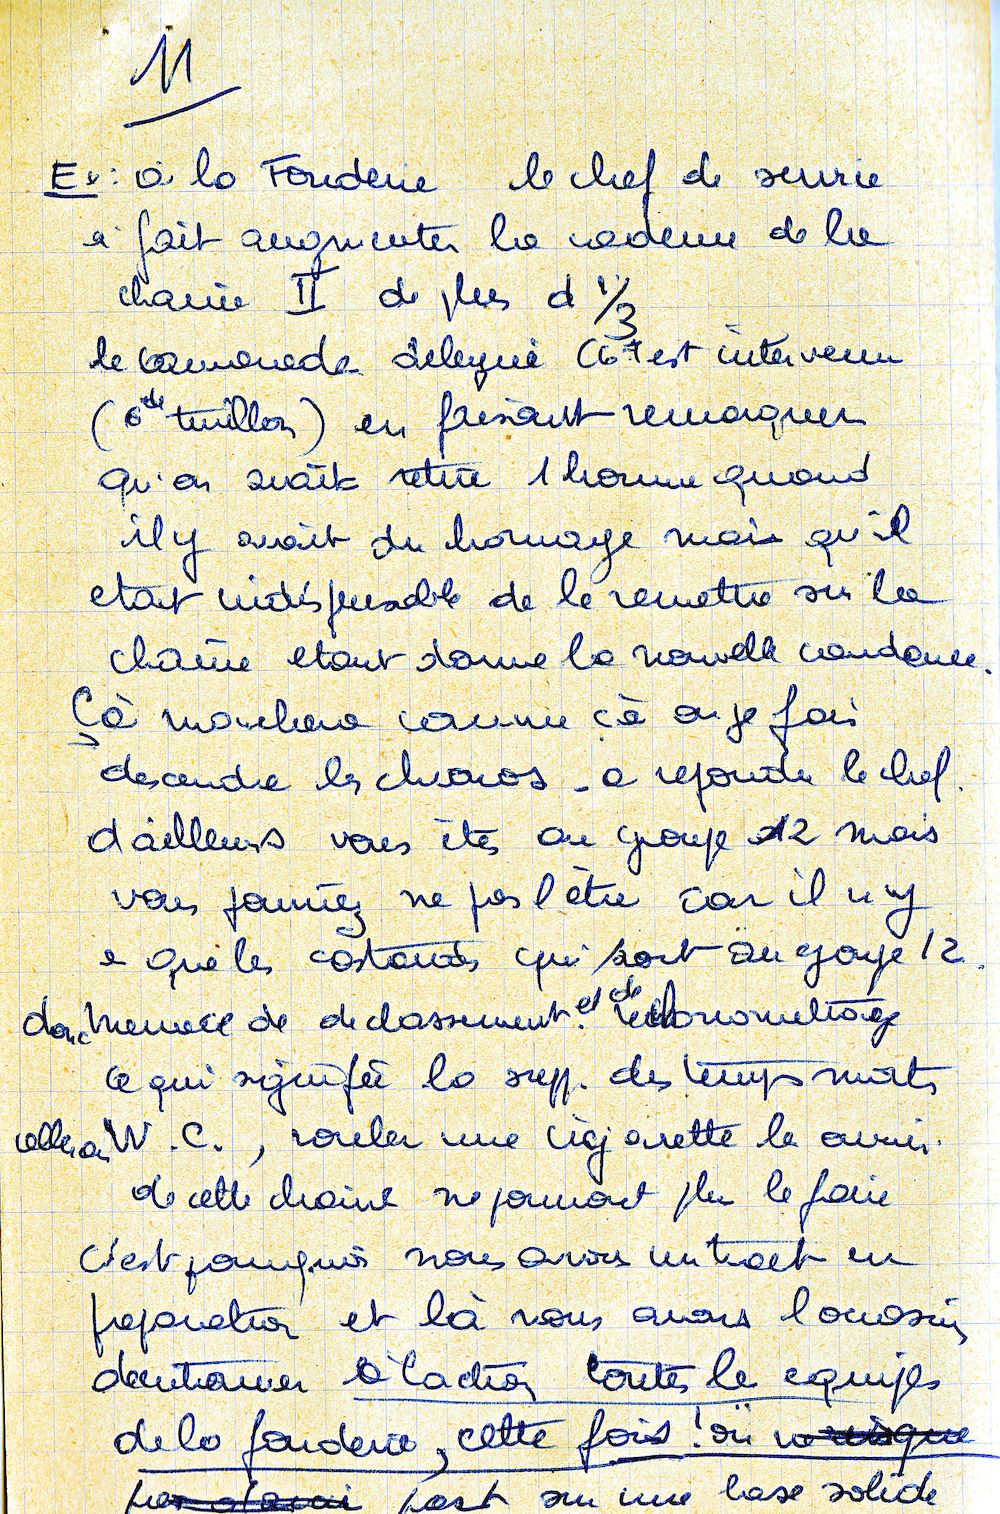 11
Ex: à la Fonderie le chef de service
a fait augmenter la cadence de la
chaine II de plus d 1/3
le camarade délégué CGT est intervenu
(6de Tuillon) en faisant remarquer
qu'on avait retiré 1 homme quand
il y avait du chomage mais qu'il
etait indispensable de le remettre sur la
chaine etant donné la nouvelle candence.
Çà marchera comme çà ou je fais
descendre les chronos - a repondu le chef.
d'ailleurs vous êtes au groupe 12 mais
vous pourriez ne pas l'être car il n'y
a que les costauds qui sont au groupe 12.
donc menace de declassement et de rechronometrage
ce qui signifie la supp. des temps morts
aller au W.C., rouler une cigarette le ouvrier
de cette chaine ne pouvant plus le faire
c'est pourquoi nous avons un tract en
preparation et là nous avons l'occasion
d'entrainer à l'action toutes les equipes
de la fonderie, cette fois! on va risque
pas part sur une base solide